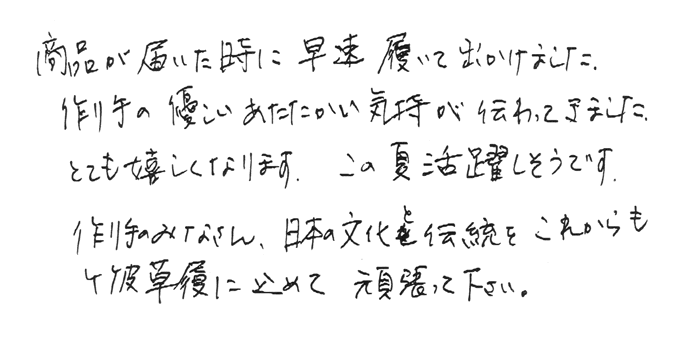 商品が届いた時に早速履いて出かけました.
作り手の優しいあたたかい気持が伝わってきました.
とても嬉しくなります. この夏活躍しそうです.
作り手のみなさん、日本の文化と伝統をこれからも
竹皮草履に止めて頑張って下さい。